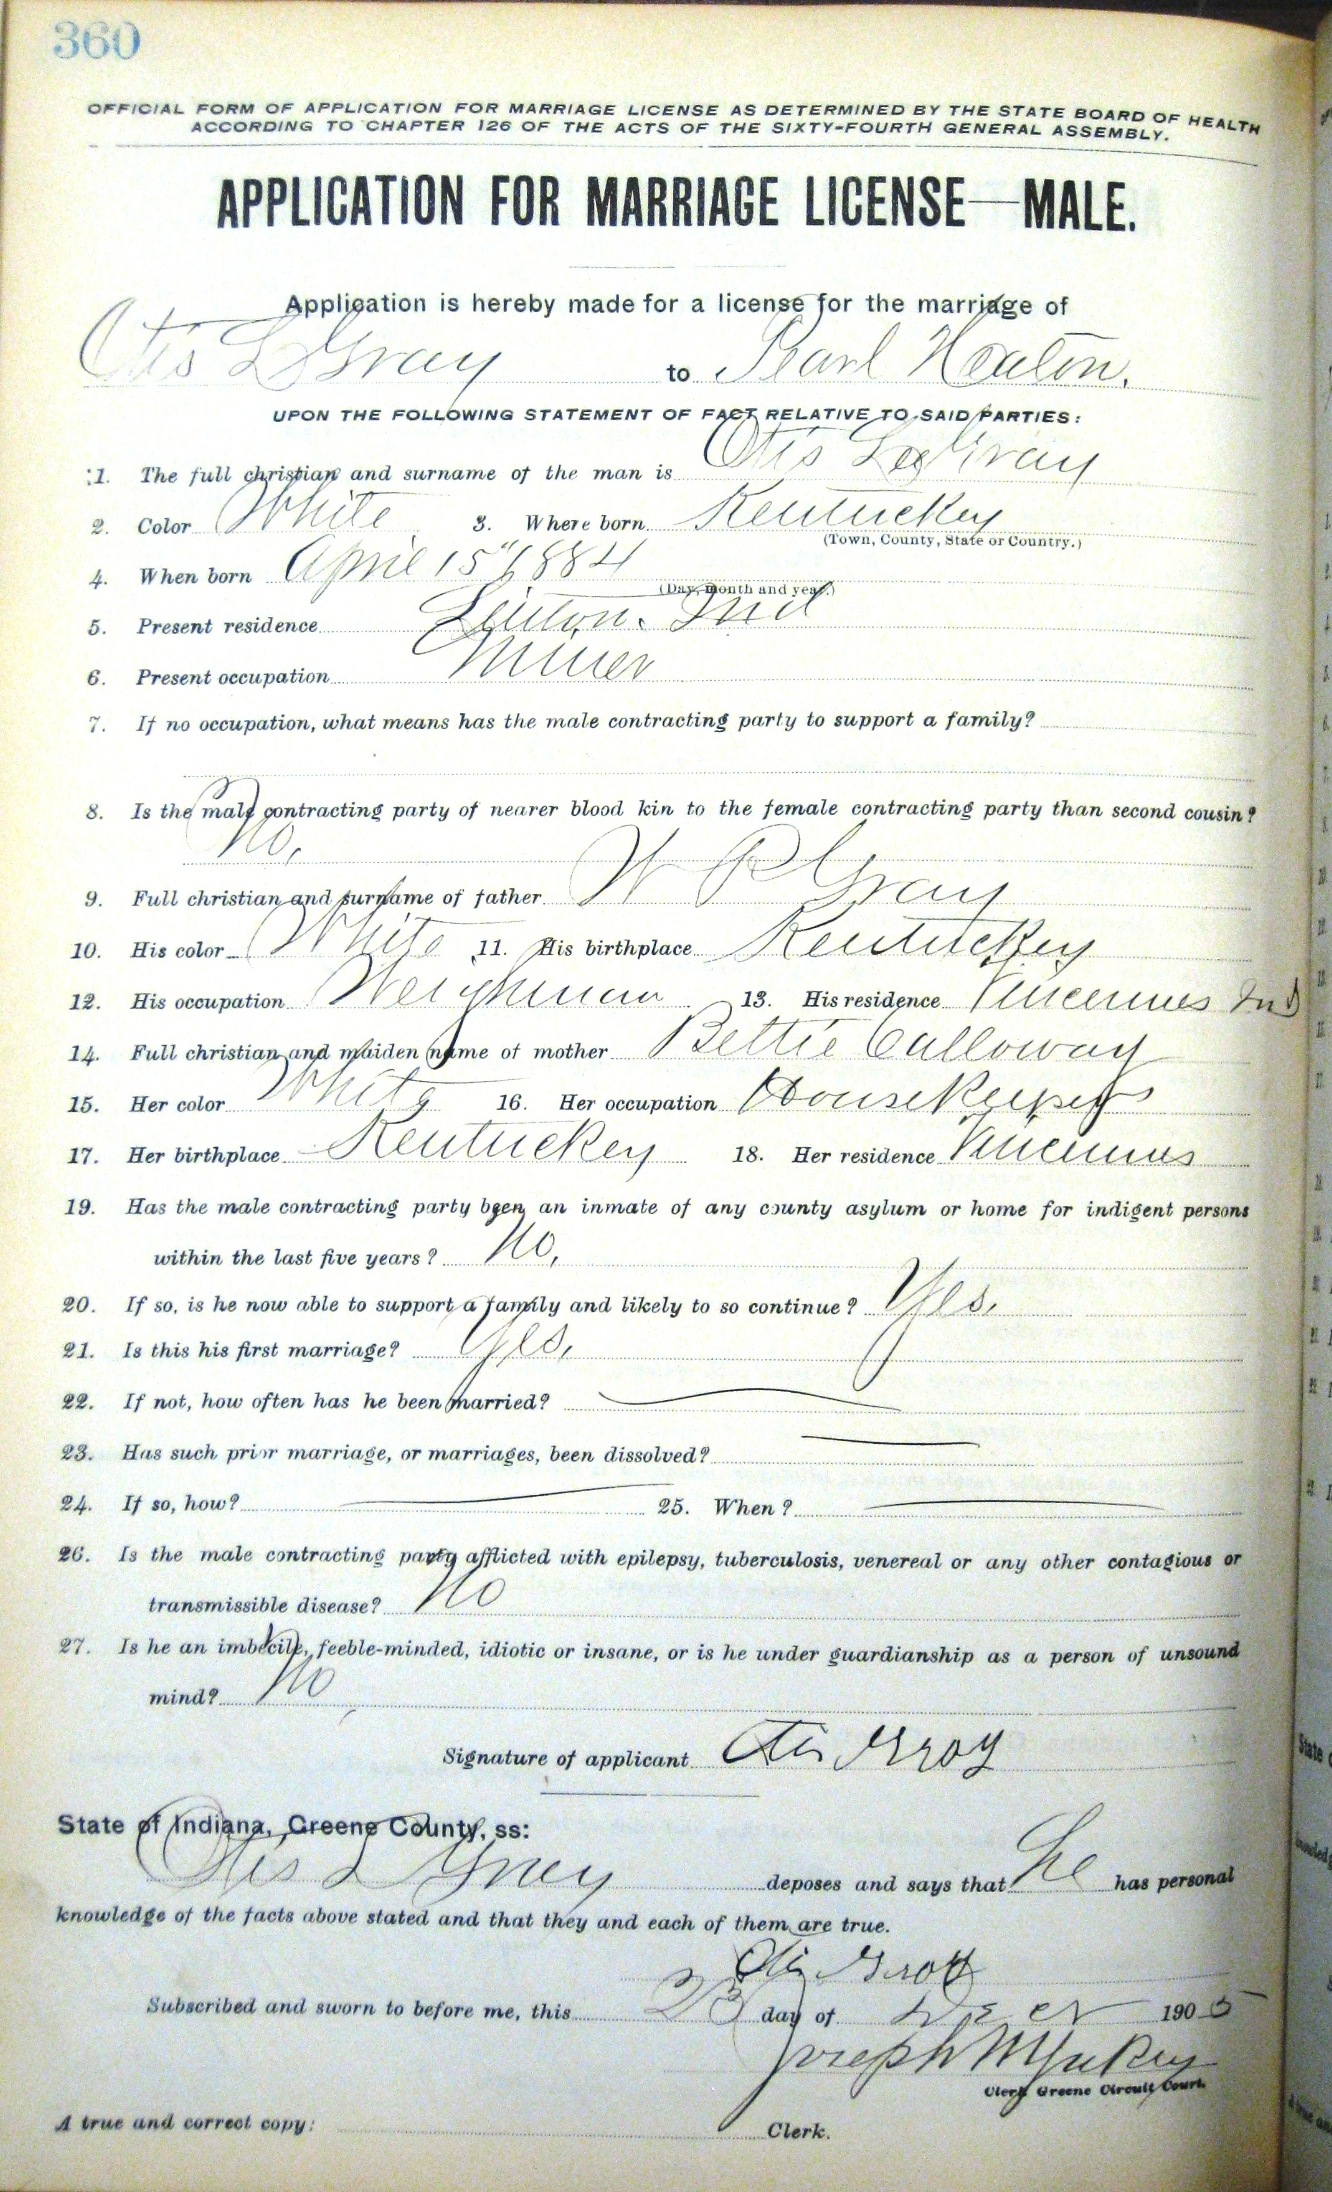 360
OFFICIAL FORM OF APPLICATION FOR MARRIAGE LICENSE AS DETERMINED BY THE STATE BOARD OF HEALTH
ACCORDING TO CHAPTER 126 OF THE ACTS OF THE SIXTY-FOURTH GENERAL ASSEMBLY.
APPLICATION FOR MARRIAGE LICENSE—MALE.
Application is hereby made for a license for the marriage of
Otis L Gray to Pearl Heaton.
UPON THE FOLLOWING STATEMENT OF FACT RELATIVE TO SAID PARTIES:
1. The full christian and surname of the man is Otis Lee Gray
2. Color White 3. Where born Kentuckey
(Town, County, State or Country.)
4. When born April 15" 1884
(Day, month and year.)
5. Present residence Linton. Ind
6. Present occupation Miner
7. If no occupation, what means has the male contracting party to support a family?
8. Is the male contracting party of nearer blood kin to the female contracting party than second cousin?
No.
9. Full christian and surname of father W P Gray
10. His color White 11. His birthplace Kentuckey
12. His occupation Weighman 13. His residence Vincennes Ind
14. Full christian and maiden name of mother Bettie Calloway
15. Her color White 16. Her occupation Housekeeper
17. Her birthplace Kentuckey 18. Her residence Vincennes
19. Has the male contracting party been an inmate of any county asylum or home for indigent persons
within the last five years? No,
20. If so, is he now able to support a family and likely to so continue? Yes.
21. Is this his first marriage? Yes,
22. If not, how often has he been married?
23. Has such prior marriage, or marriages, been dissolved?
24. If so, how? 25. When?
26. Is the male contracting party afflicted with epilepsy, tuberculosis, venereal or any other contagious or
transmissible disease? No
27. Is he an imbecile, feeble-minded, idiotic or insane, or is he under guardianship as a person of unsound
mind? No
Signature of applicant Otis Gray
State of Indiana, Greene County, ss:
Otis L Gray deposes and says that he has personal
knowledge of the facts above stated and that they and each of them are true.
Otis Gray
Subscribed and sworn to before me, this 23 day of Dec 1905
Joseph
Clerk Greene Circuit Court.
A true and correct copy: Clerk.